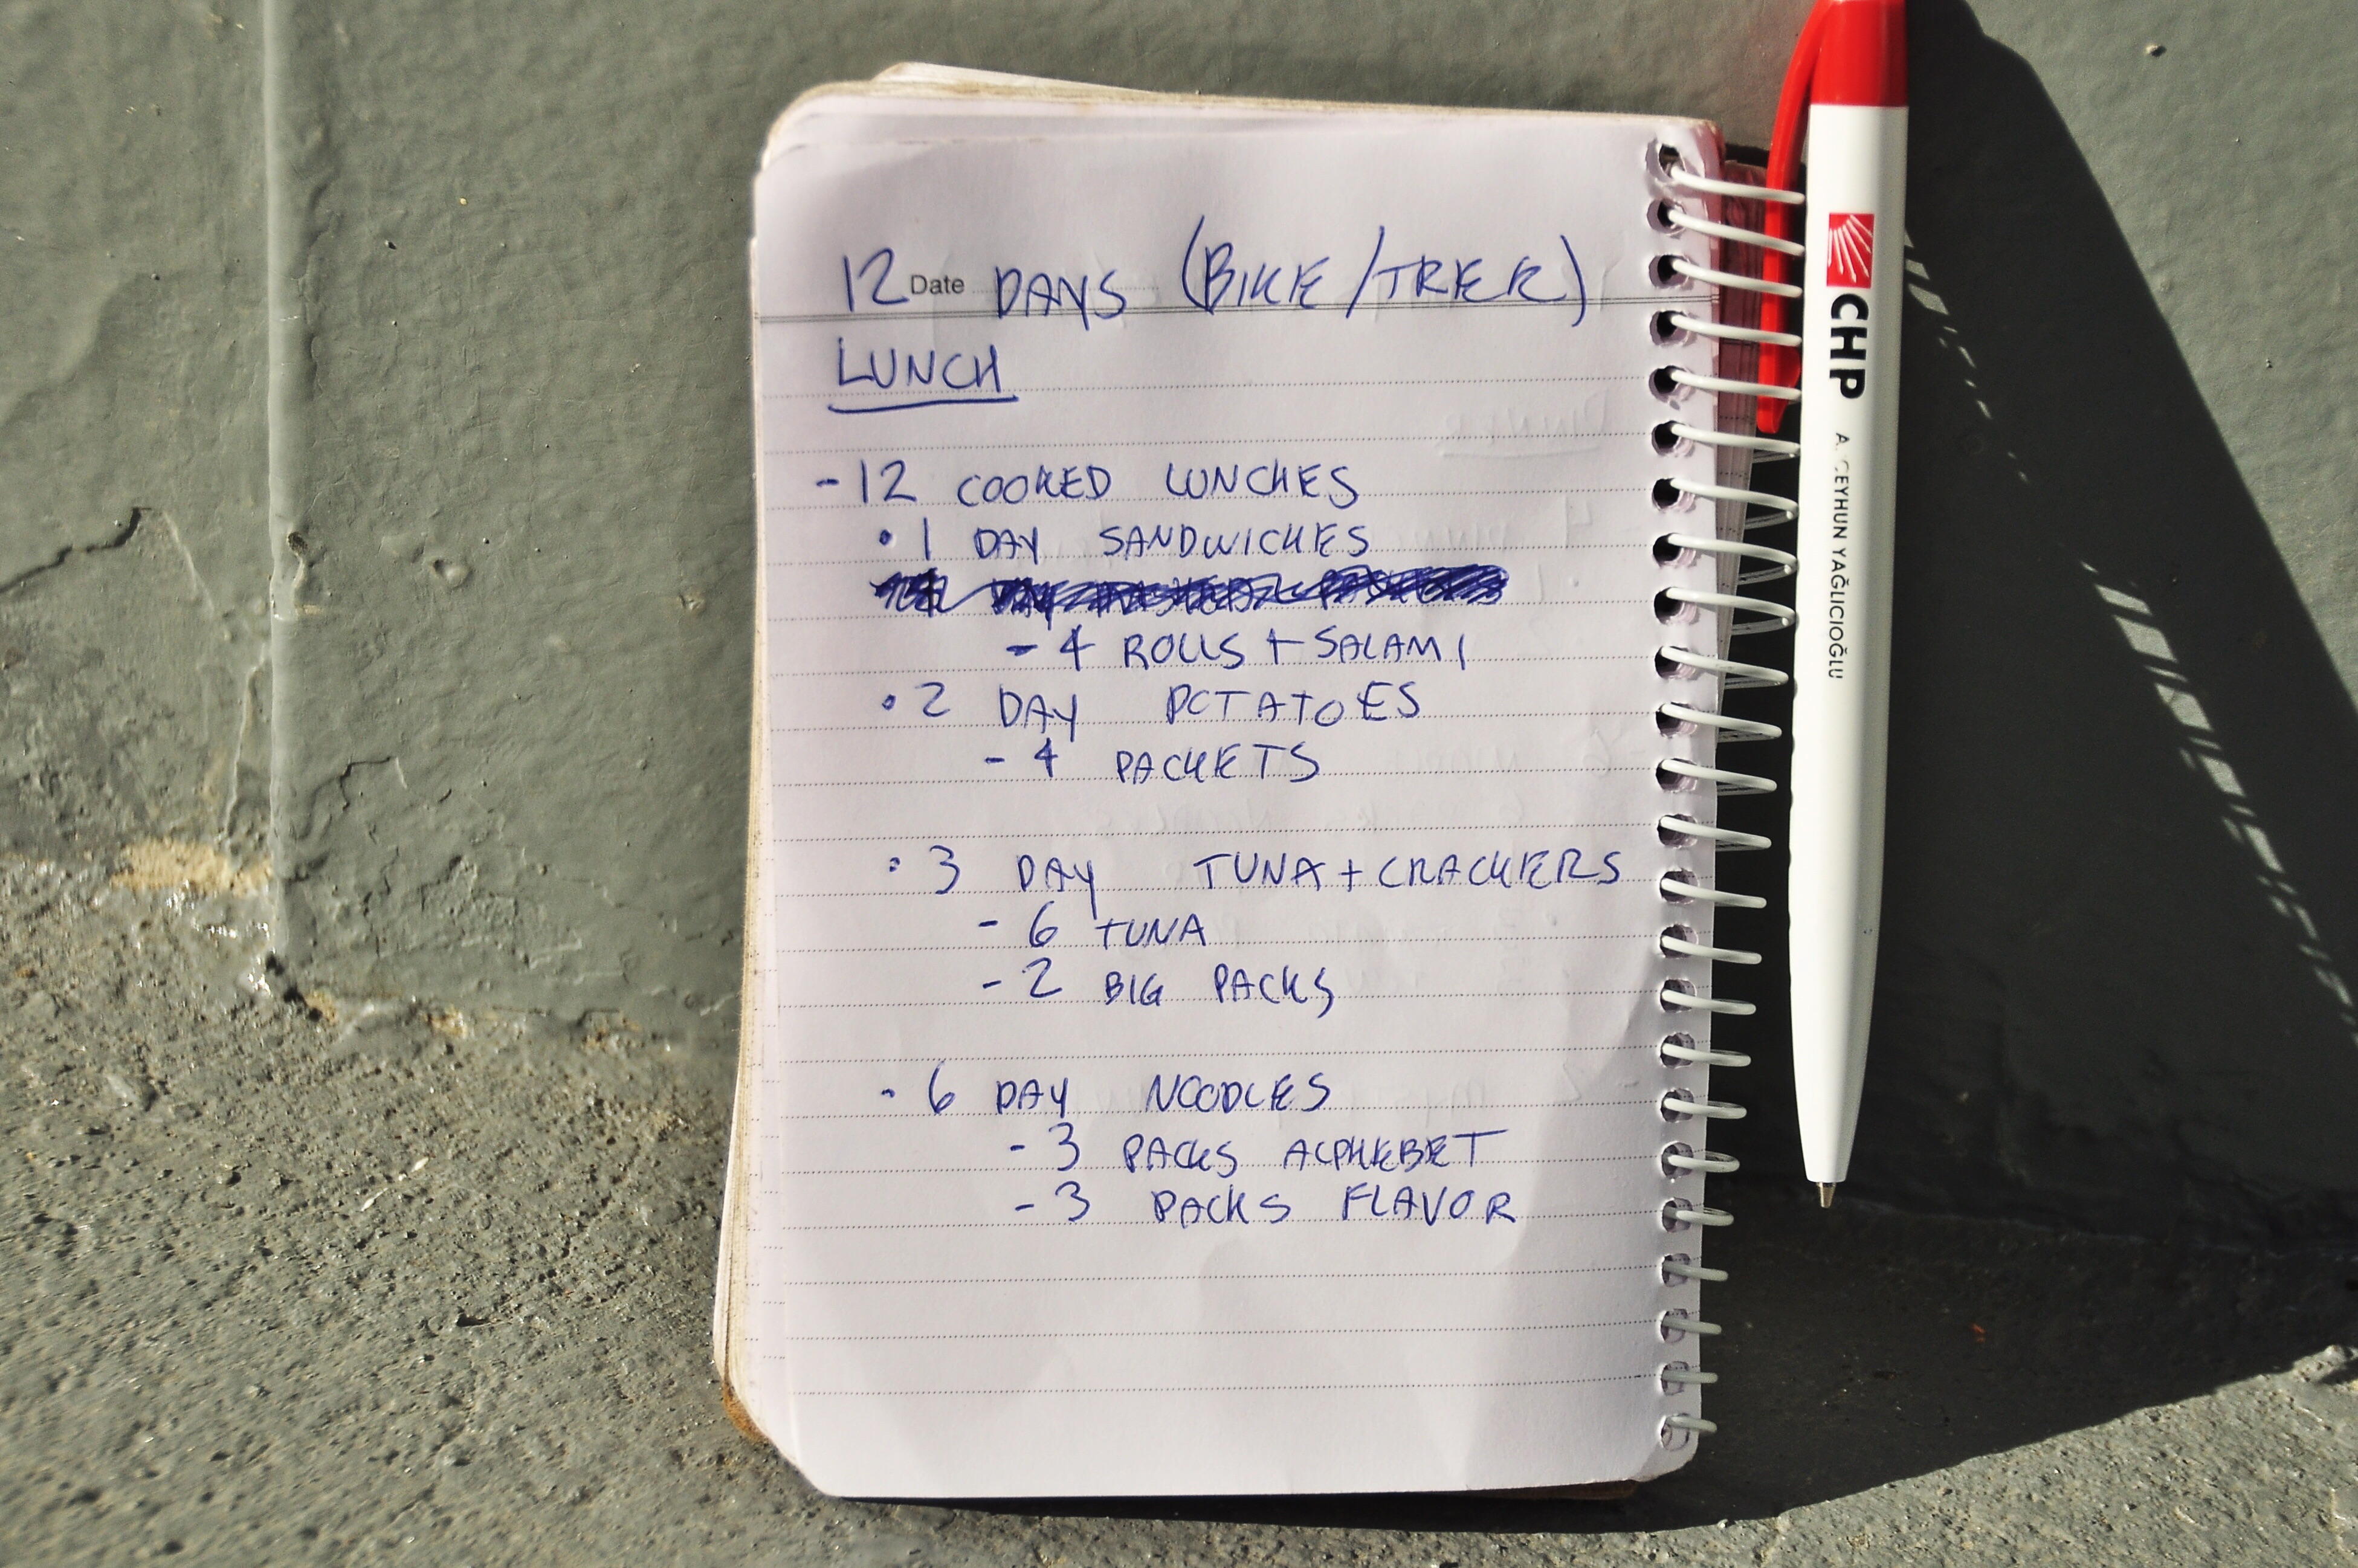 12 Date DAYS (BIKE/TREK)
LUNCH
- 12 COOKED LUNCHES
• 1 DAY SANDWICHES
- 4 ROLLS + SALAMI
• 2 DAY POTATOES
- 4 PACKETS
• 3 DAY TUNA + CRACKERS
- 6 TUNA
- 2 BIG PACKS
• 6 DAY NOODLES
- 3 PACKS ALPHEBET
- 3 PACKS FLAVOR
CHP A. CEYHUN YAĞLICIOĞLU